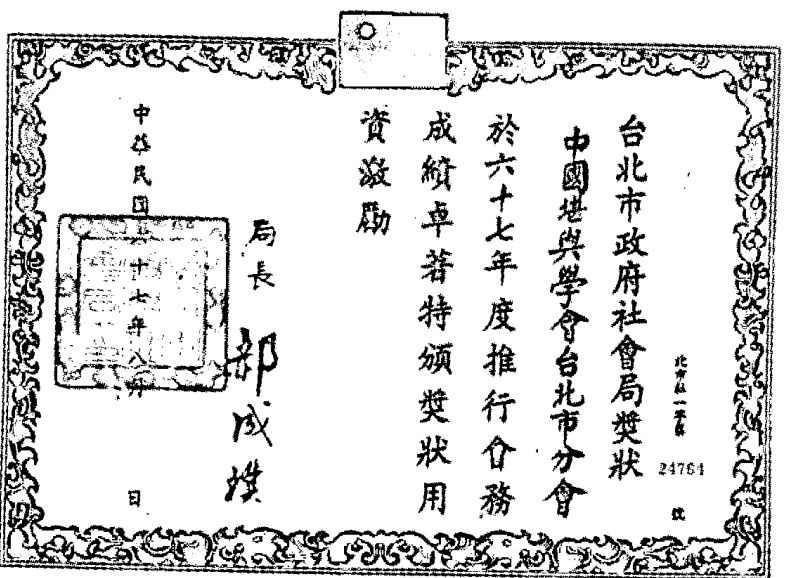 北市社一字第24764號
台北市政府社會局獎狀
中國堪輿學會台北市分會
於六十七年度推行會務
成績卓著特頒獎狀用
資激勵
局長
中華民國六十七年八月 日